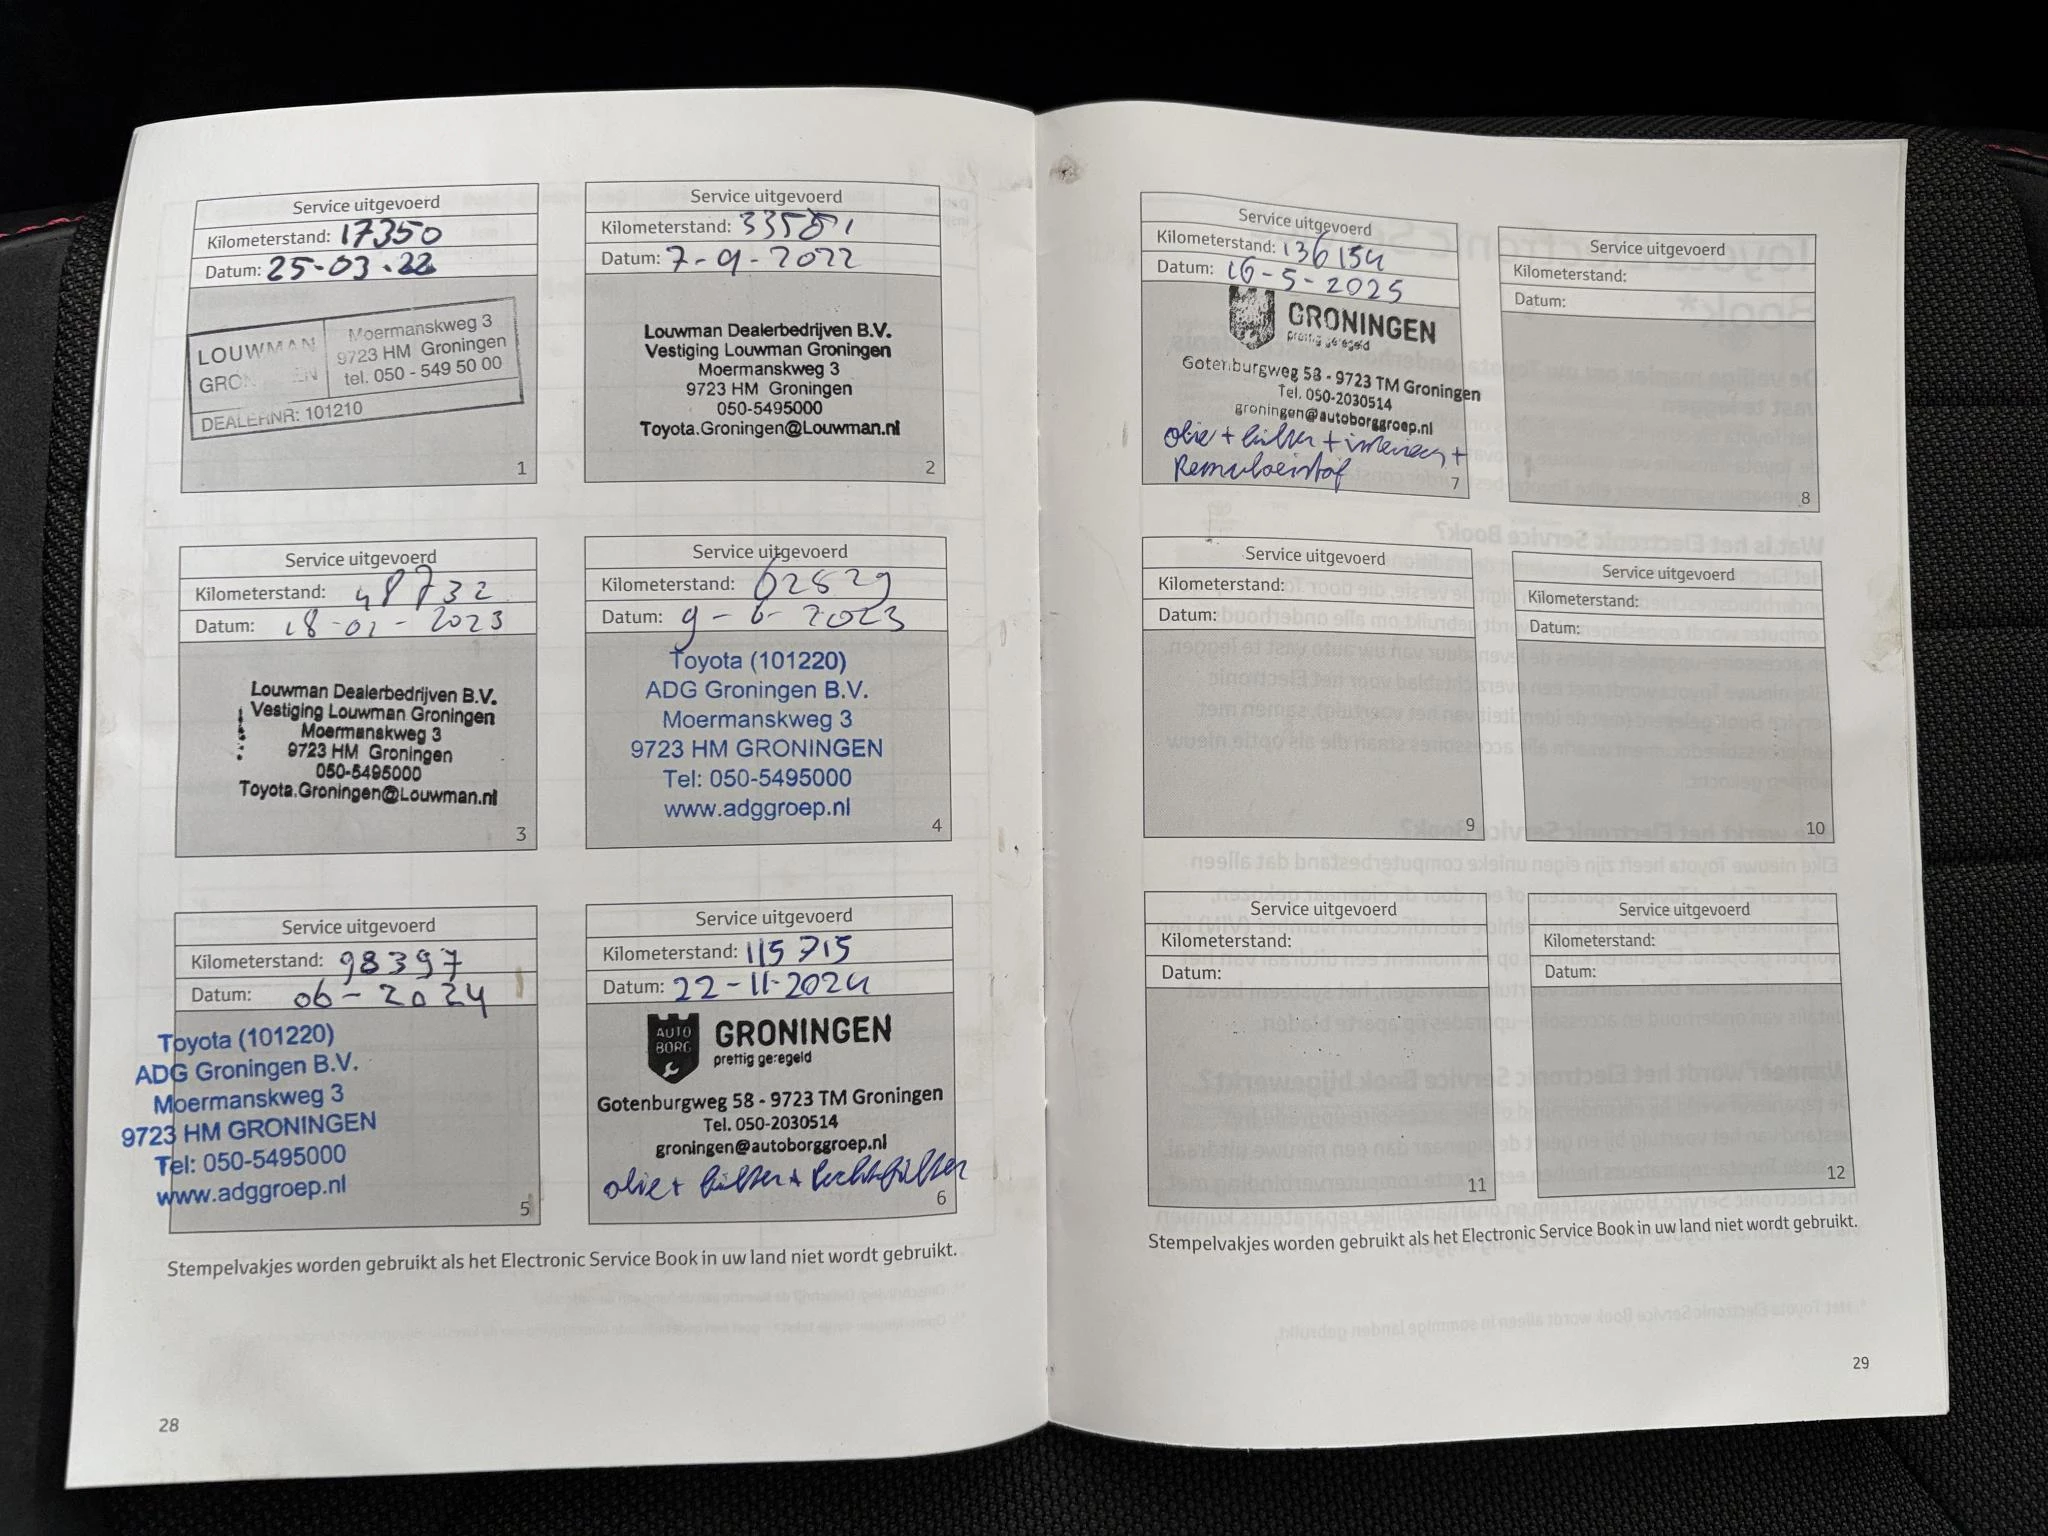 Service uitgevoerd
Kilometerstand: 17350
Datum: 25-03-22
LOUWMAN
GRON EN
Moermanskweg 3
9723 HM Groningen
tel. 050 - 549 50 00
DEALERNR: 101210
1
Service uitgevoerd
Kilometerstand:
Datum: 7-9-2022
Louwman Dealerbedrijven B.V.
Vestiging Louwman Groningen
Moermanskweg 3
9723 HM Groningen
050-5495000
Toyota.Groningen@Louwman.nl
2
Service uitgevoerd
Kilometerstand: 48732
Datum: 18-01-2023
Louwman Dealerbedrijven B.V.
Vestiging Louwman Groningen
Moermanskweg 3
9723 HM Groningen
050-5495000
Toyota.Groningen@Louwman.nl
3
Service uitgevoerd
Kilometerstand: 62529
Datum: 9-6-2023
Toyota (101220)
ADG Groningen B.V.
Moermanskweg 3
9723 HM GRONINGEN
Tel: 050-5495000
www.adggroep.nl
4
Service uitgevoerd
Kilometerstand: 98397
Datum: 06-2024
Toyota (101220)
ADG Groningen B.V.
Moermanskweg 3
9723 HM GRONINGEN
Tel: 050-5495000
www.adggroep.nl
5
Service uitgevoerd
Kilometerstand: 115715
Datum: 22-11-2024
AUTO
BORG
GRONINGEN
prettig geregeld
Gotenburgweg 58 - 9723 TM Groningen
Tel. 050-2030514
groningen@autoborggroep.nl
olie + filter + luchtfilter
6
Stempelvakjes worden gebruikt als het Electronic Service Book in uw land niet wordt gebruikt.
28
Service uitgevoerd
Kilometerstand: 136154
Datum: 16-5-2025
GRONINGEN
prettig geregeld
Gotenburgweg 58 - 9723 TM Groningen
Tel. 050-2030514
groningen@autoborggroep.nl
olie + filter + interieur +
Remvloeistof
7
Service uitgevoerd
Kilometerstand:
Datum:
8
Service uitgevoerd
Kilometerstand:
Datum:
9
Service uitgevoerd
Kilometerstand:
Datum:
10
Service uitgevoerd
Kilometerstand:
Datum:
11
Service uitgevoerd
Kilometerstand:
Datum:
12
Stempelvakjes worden gebruikt als het Electronic Service Book in uw land niet wordt gebruikt.
29